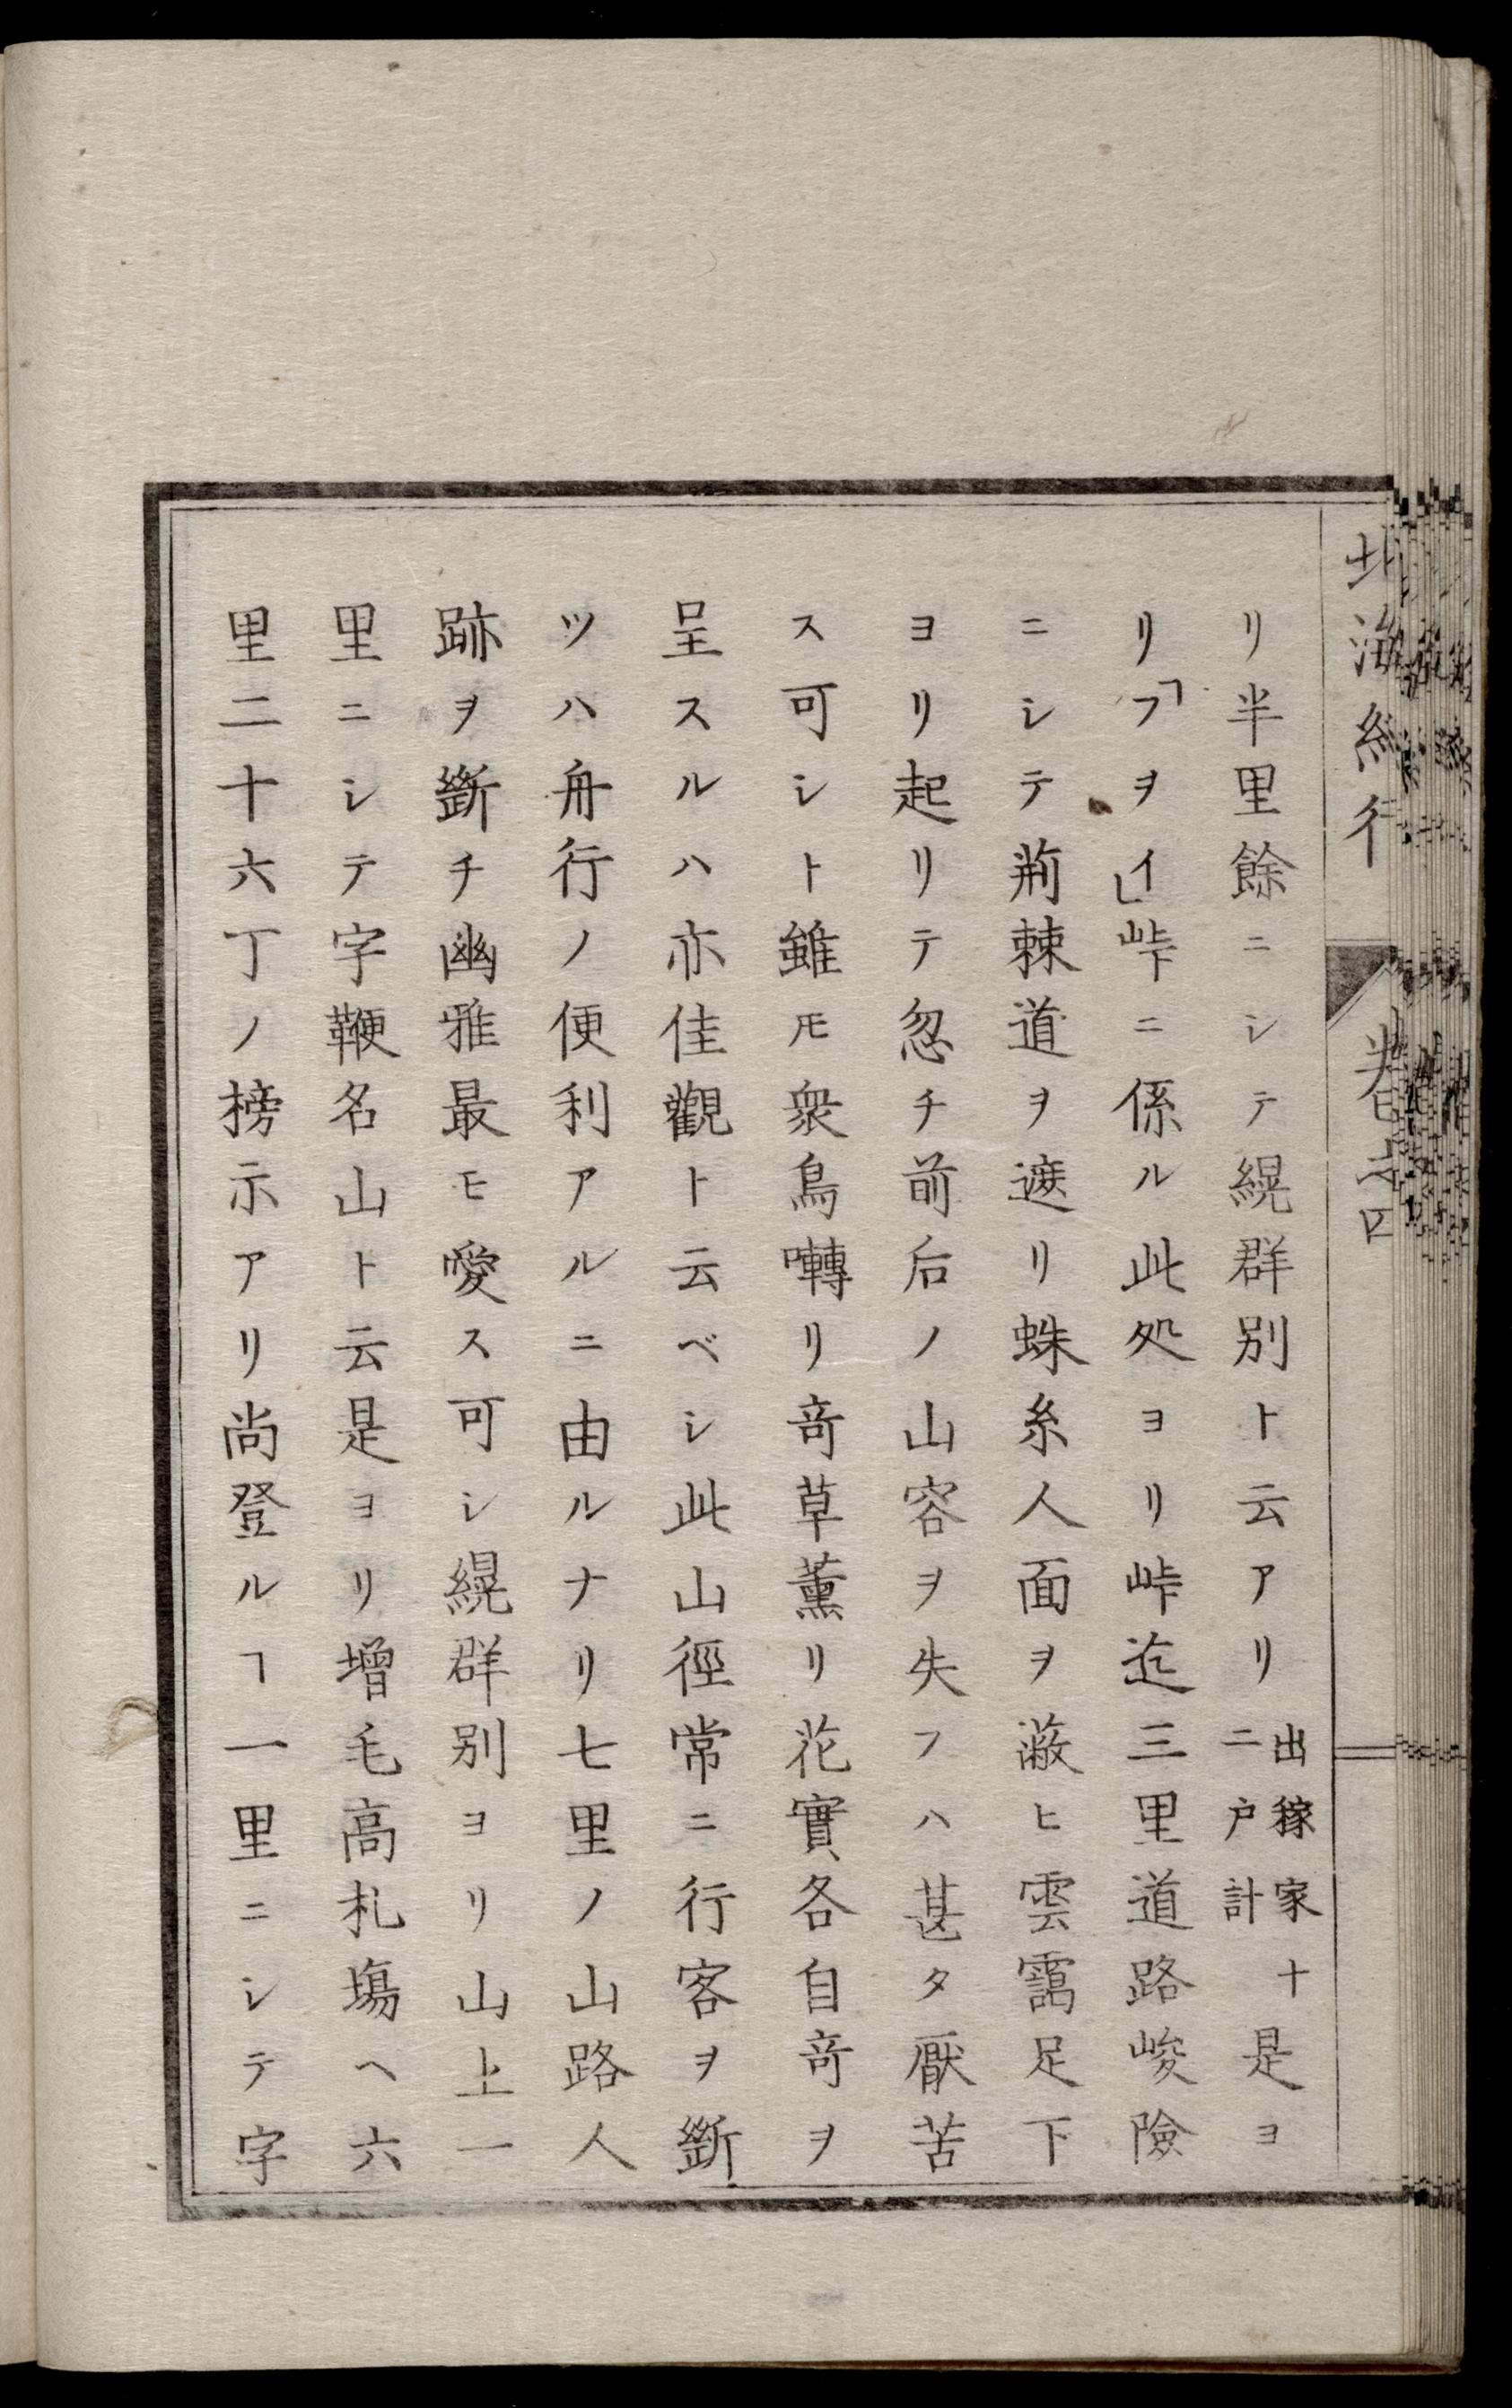 北海紀行 巻之四
リ半里餘ニシテ縨群別ト云アリ出稼家十二戸計是ヨ
リ「フヲイ」峠ニ係ル此処ヨリ峠迄三里道路峻險
ニシテ荊棘道ヲ遮リ蛛糸人面ヲ蔽ヒ雲靄足下
ヨリ起リテ忽チ前后ノ山容ヲ失フハ甚タ厭苦
ス可シト雖𪜈衆鳥囀リ竒草薫リ花實各自竒ヲ
呈スルハ亦佳觀ト云ベシ此山徑常ニ行客ヲ斷
ツハ舟行ノ便利アルニ由ルナリ七里ノ山路人
跡ヲ斷チ幽雅最モ愛ス可シ縨群別ヨリ山上一
里ニシテ字鞭名山ト云是ヨリ増毛高札塲ヘ六
里二十六丁ノ榜示アリ尚登ルヿ一里ニシテ字